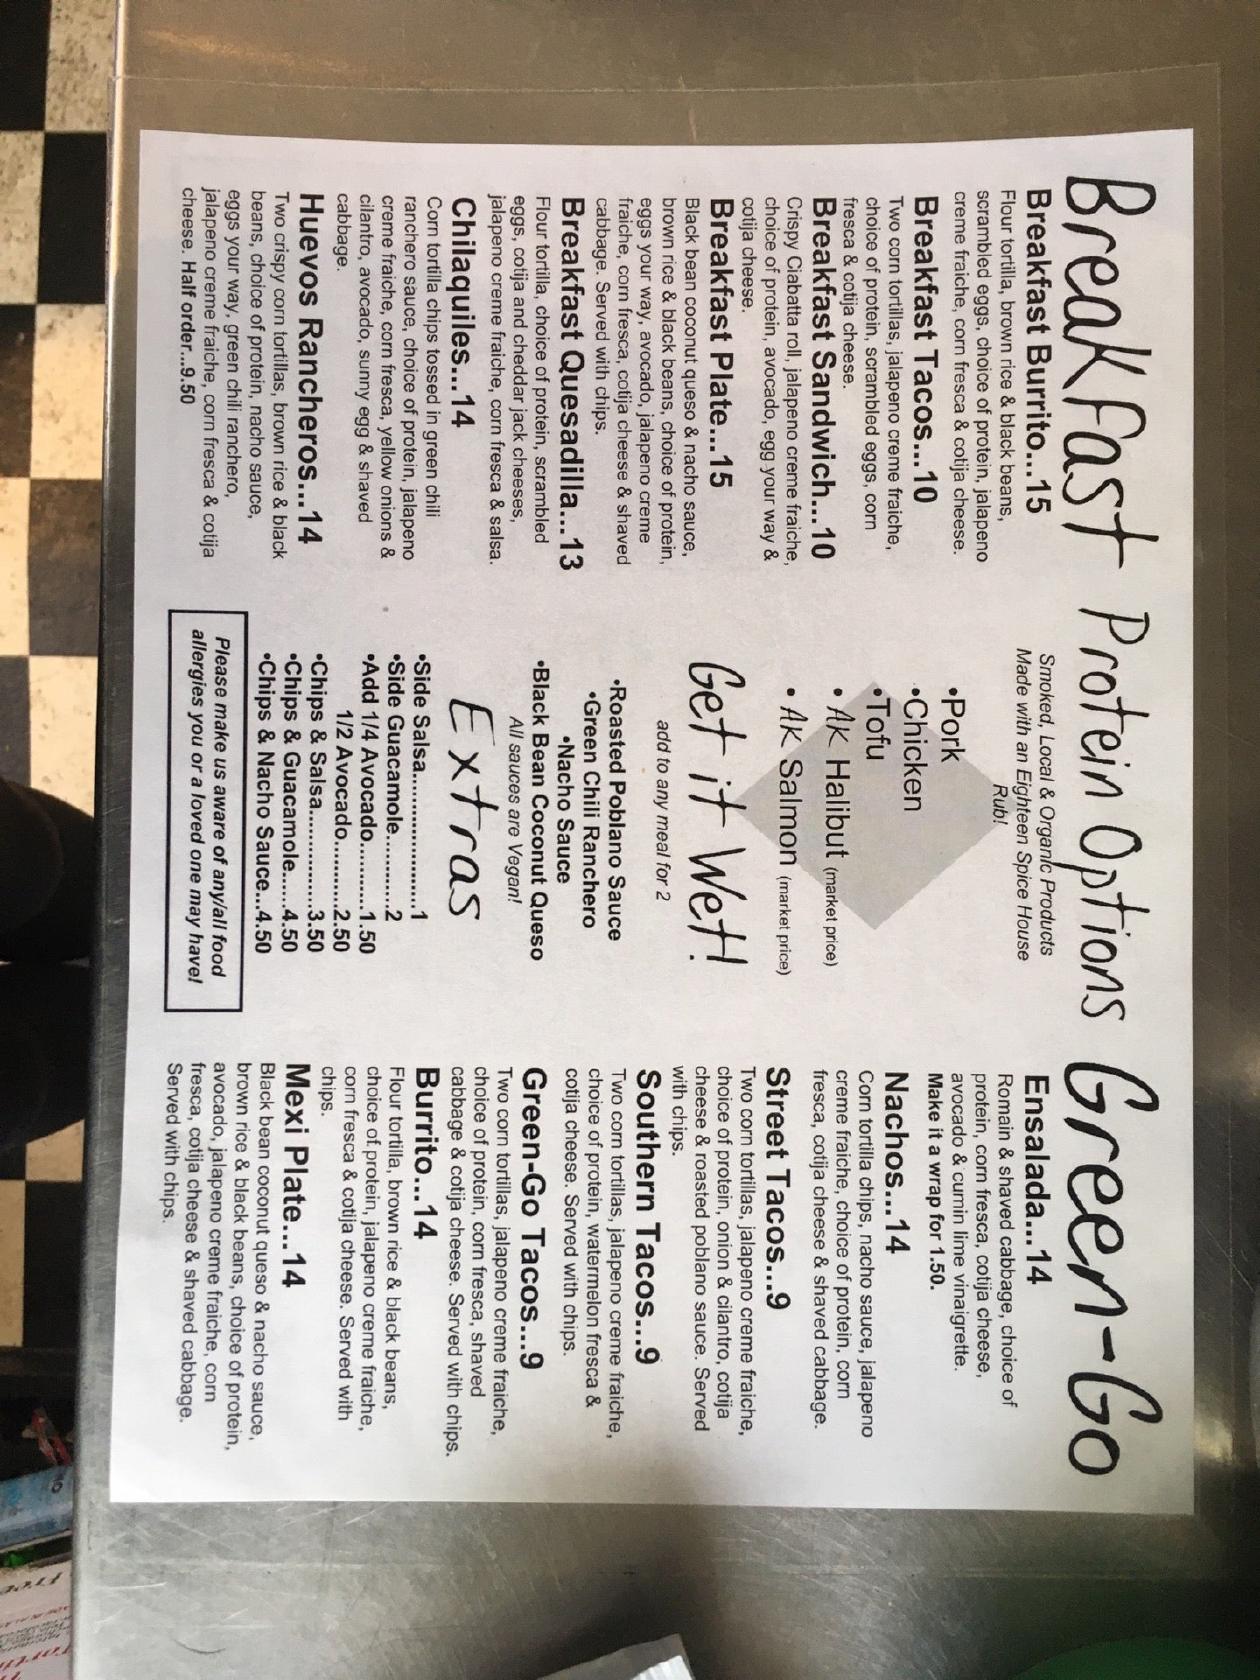 Breakfast
Breakfast Burrito...15
Flour tortilla, brown rice & black beans,
scrambled eggs, choice of protein, jalapeno
creme fraiche, corn fresca & cotija cheese.
Breakfast Tacos...10
Two corn tortillas, jalapeno creme fraiche,
choice of protein, scrambled eggs, corn
fresca & cotija cheese.
Breakfast Sandwich...10
Crispy Ciabatta roll, jalapeno creme fraiche,
choice of protein, avocado, egg your way &
cotija cheese.
Breakfast Plate...15
Black bean coconut queso & nacho sauce,
brown rice & black beans, choice of protein,
eggs your way, avocado, jalapeno creme
fraiche, corn fresca, cotija cheese & shaved
cabbage. Served with chips.
Breakfast Quesadilla...13
Flour tortilla, choice of protein, scrambled
eggs, cotija and cheddar jack cheeses,
jalapeno creme fraiche, corn fresca & salsa.
Chilaquiles...14
Corn tortilla chips tossed in green chili
ranchero sauce, choice of protein, jalapeno
creme fraiche, corn fresca, yellow onions &
cilantro, avocado, sunny egg & shaved
cabbage.
Huevos Rancheros...14
Two crispy corn tortillas, brown rice & black
beans, choice of protein, nacho sauce,
eggs your way, green chili ranchero,
jalapeno creme fraiche, corn fresca & cotija
cheese. Half order...9.50
Protein Options
Smoked, Local & Organic Products
Made with an Eighteen Spice House
Rub!
•Pork
•Chicken
•Tofu
• AK Halibut (market price)
• AK Salmon (market price)
Get it Wet!
add to any meal for 2
•Roasted Poblano Sauce
•Green Chili Ranchero
•Nacho Sauce
•Black Bean Coconut Queso
All sauces are Vegan!
Extras
•Side Salsa......................1
•Side Guacamole............2
•Add 1/4 Avocado..........1.50
1/2 Avocado..........2.50
•Chips & Salsa..............3.50
•Chips & Guacamole......4.50
•Chips & Nacho Sauce...4.50
Please make us aware of any/all food
allergies you or a loved one may have!
Green-Go
Ensalada...14
Romain & shaved cabbage, choice of
protein, corn fresca, cotija cheese,
avocado & cumin lime vinaigrette.
Make it a wrap for 1.50.
Nachos...14
Corn tortilla chips, nacho sauce, jalapeno
creme fraiche, choice of protein, corn
fresca, cotija cheese & shaved cabbage.
Street Tacos...9
Two corn tortillas, jalapeno creme fraiche,
choice of protein, onion & cilantro, cotija
cheese & roasted poblano sauce. Served
with chips.
Southern Tacos...9
Two corn tortillas, jalapeno creme fraiche,
choice of protein, watermelon fresca &
cotija cheese. Served with chips.
Green-Go Tacos...9
Two corn tortillas, jalapeno creme fraiche,
choice of protein, corn fresca, shaved
cabbage & cotija cheese. Served with chips.
Burrito...14
Flour tortilla, brown rice & black beans,
choice of protein, jalapeno creme fraiche,
corn fresca & cotija cheese. Served with
chips.
Mexi Plate...14
Black bean coconut queso & nacho sauce,
brown rice & black beans, choice of protein,
avocado, jalapeno creme fraiche, corn
fresca, cotija cheese & shaved cabbage.
Served with chips.